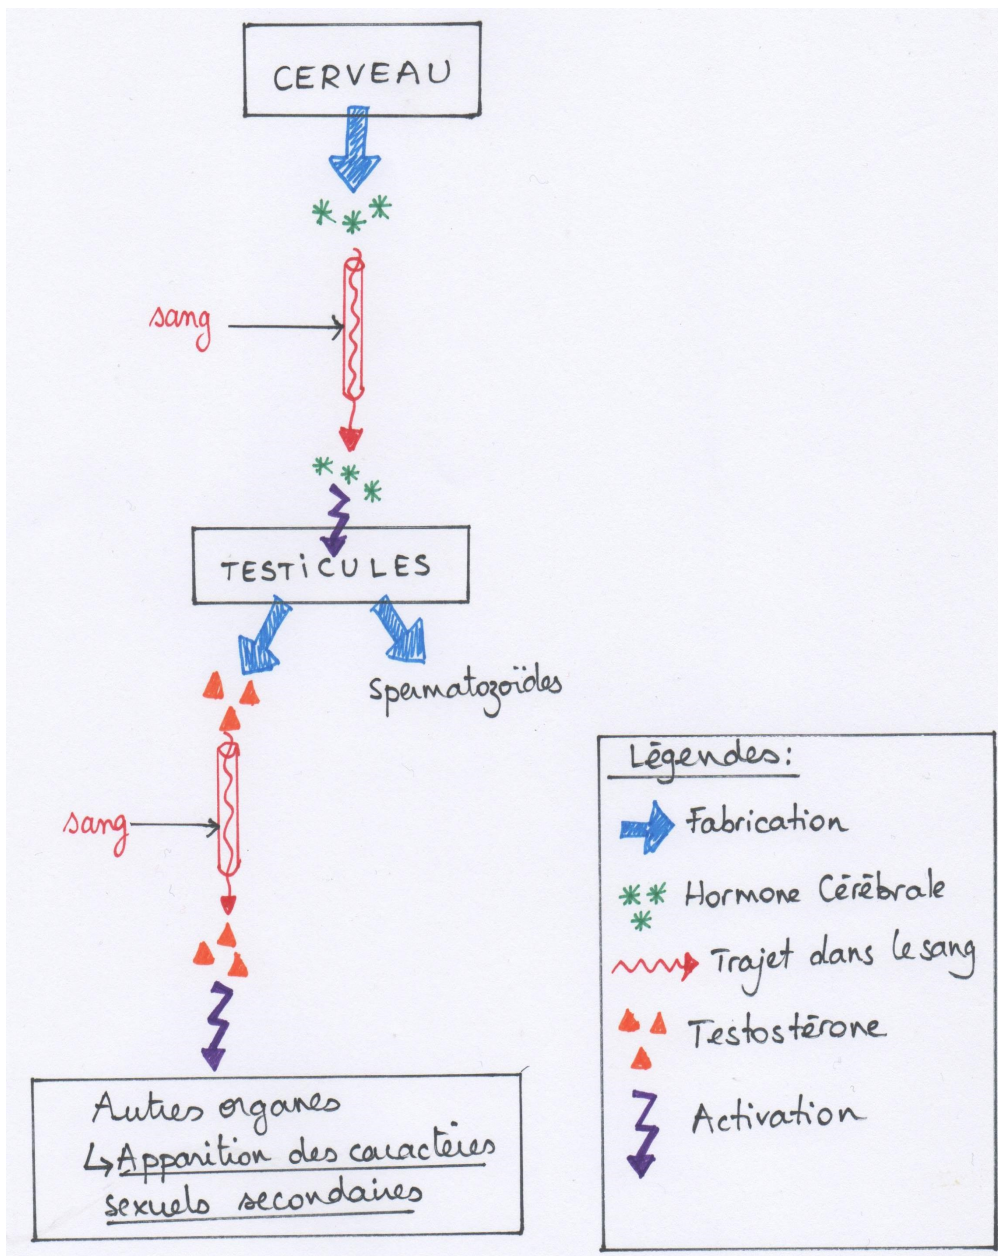 CERVEAU
sang
TESTICULES
spermatozoïdes
sang
Autres organes
↳ Apparition des caractères
sexuels secondaires
Légendes:
Fabrication
Hormone Cérébrale
Trajet dans le sang
Testostérone
Activation